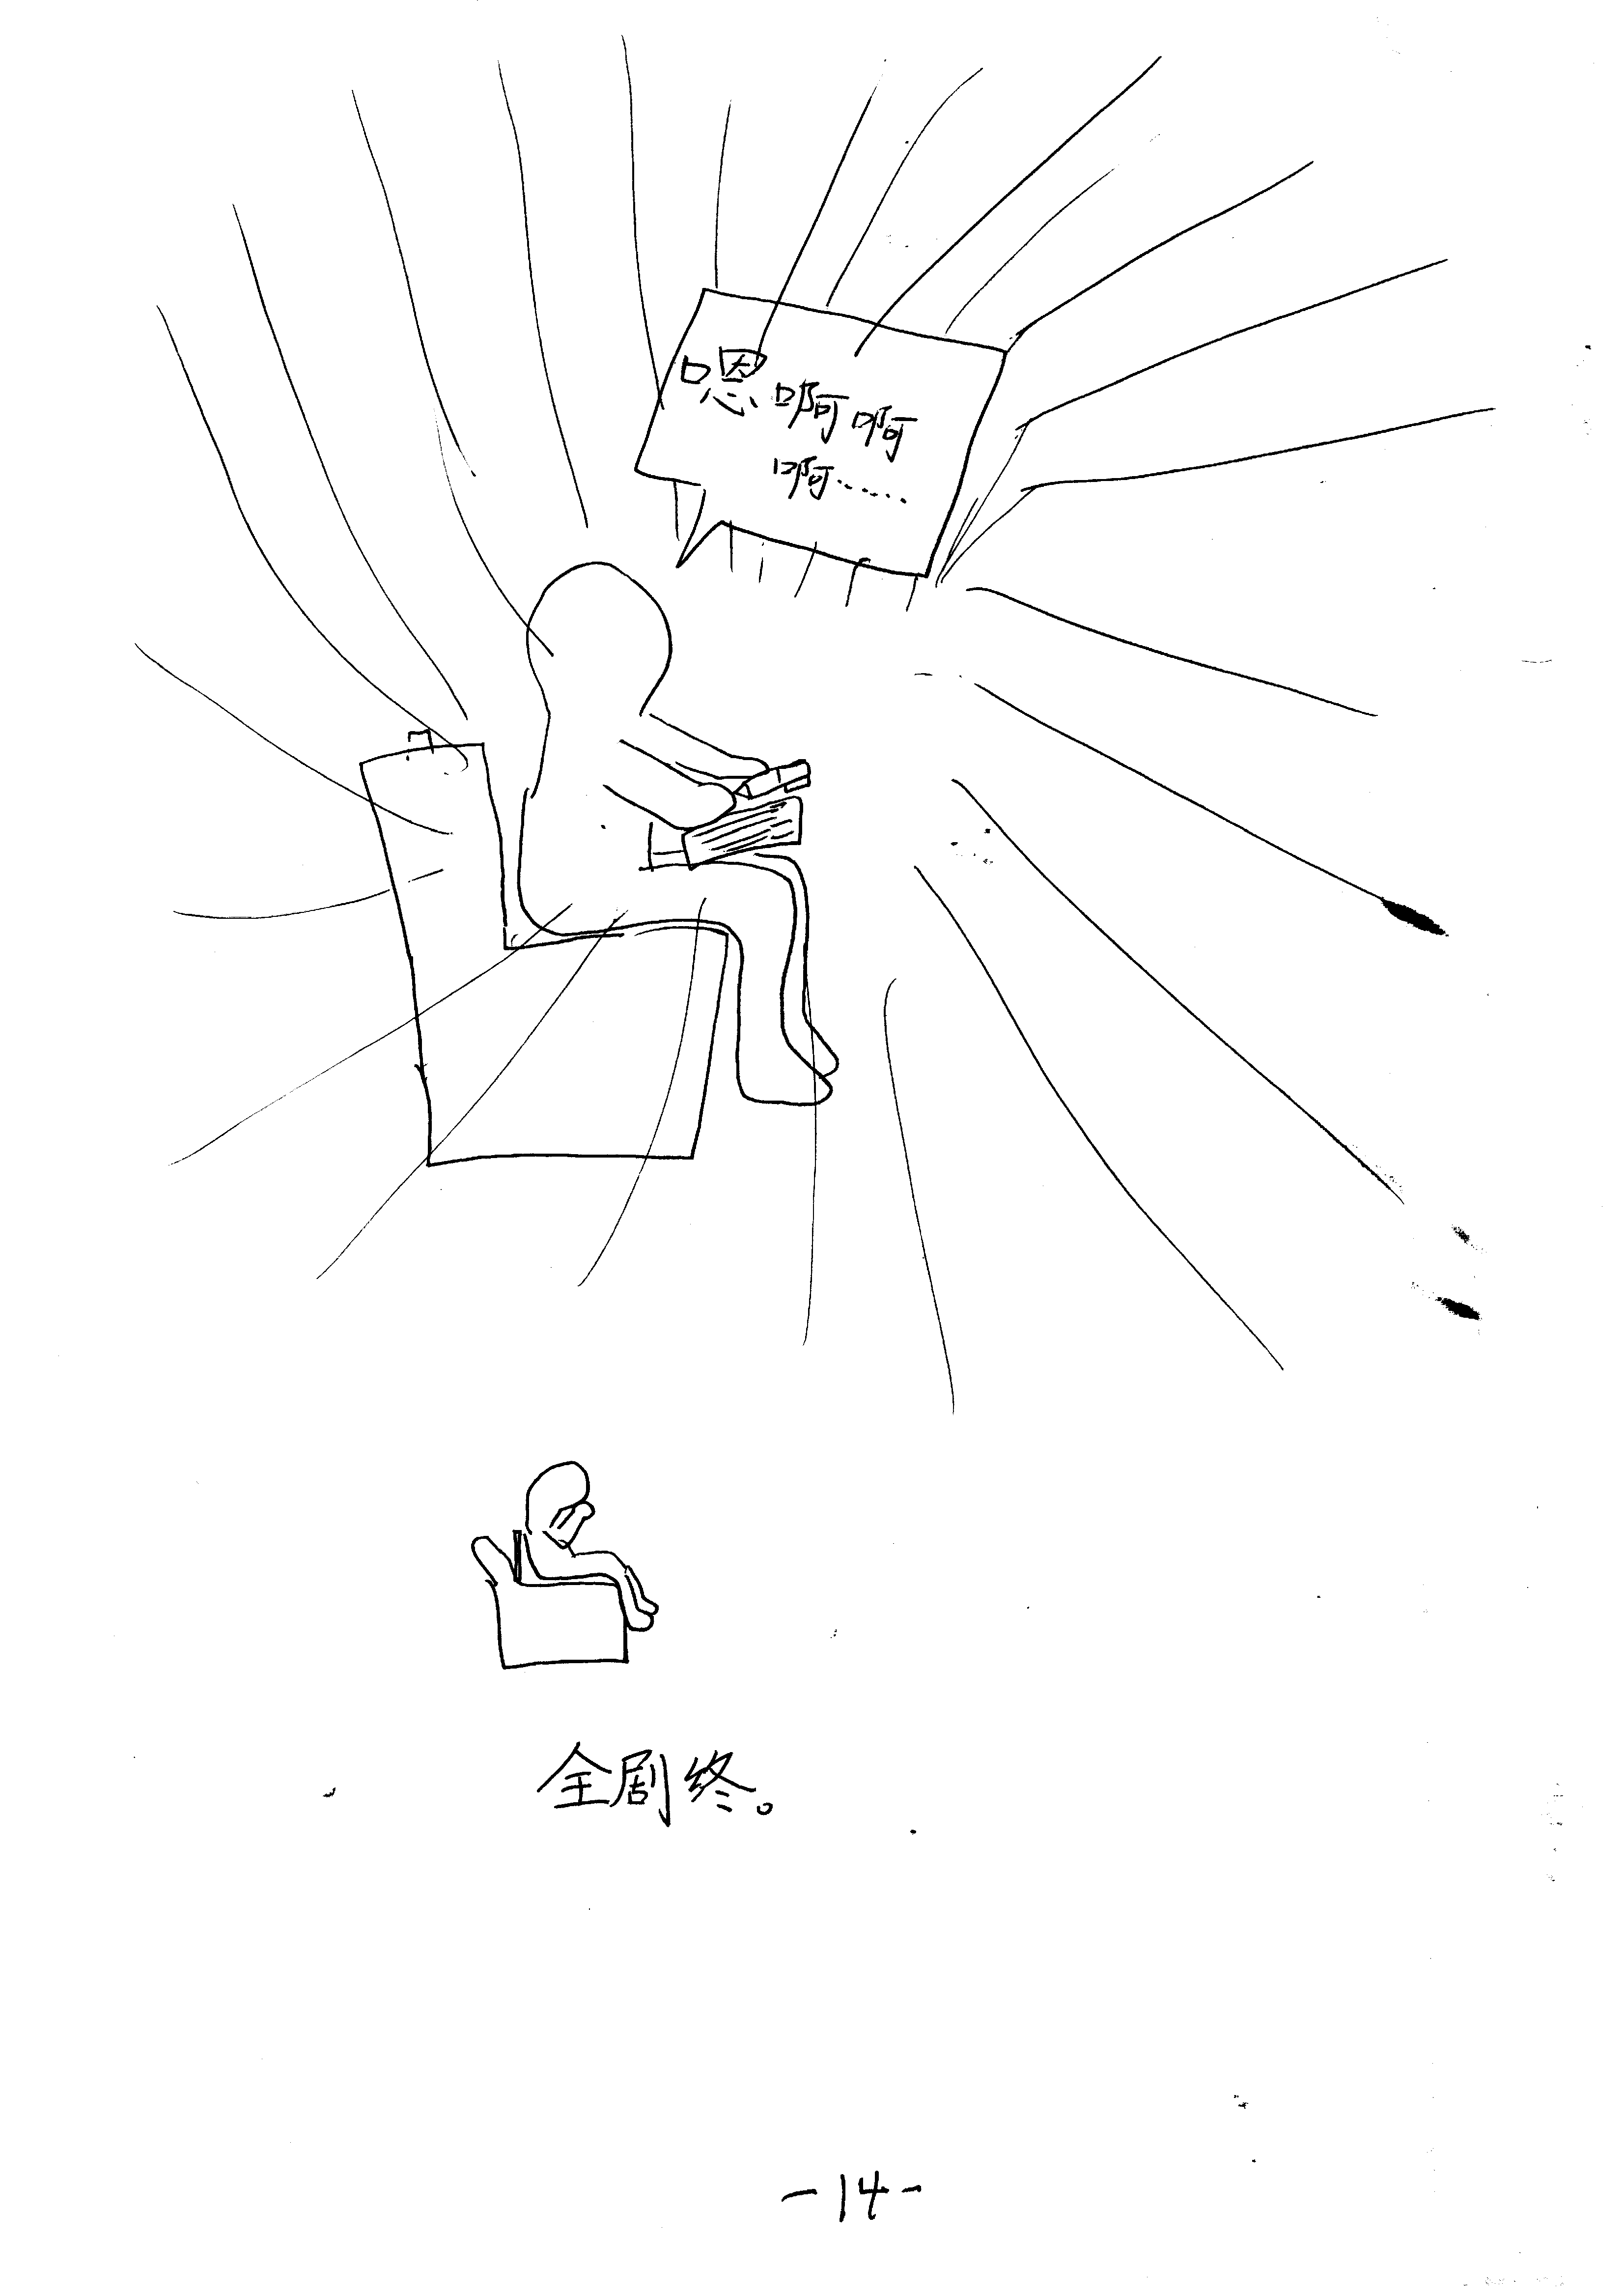 嗯啊啊
啊……
全剧终。
-14-